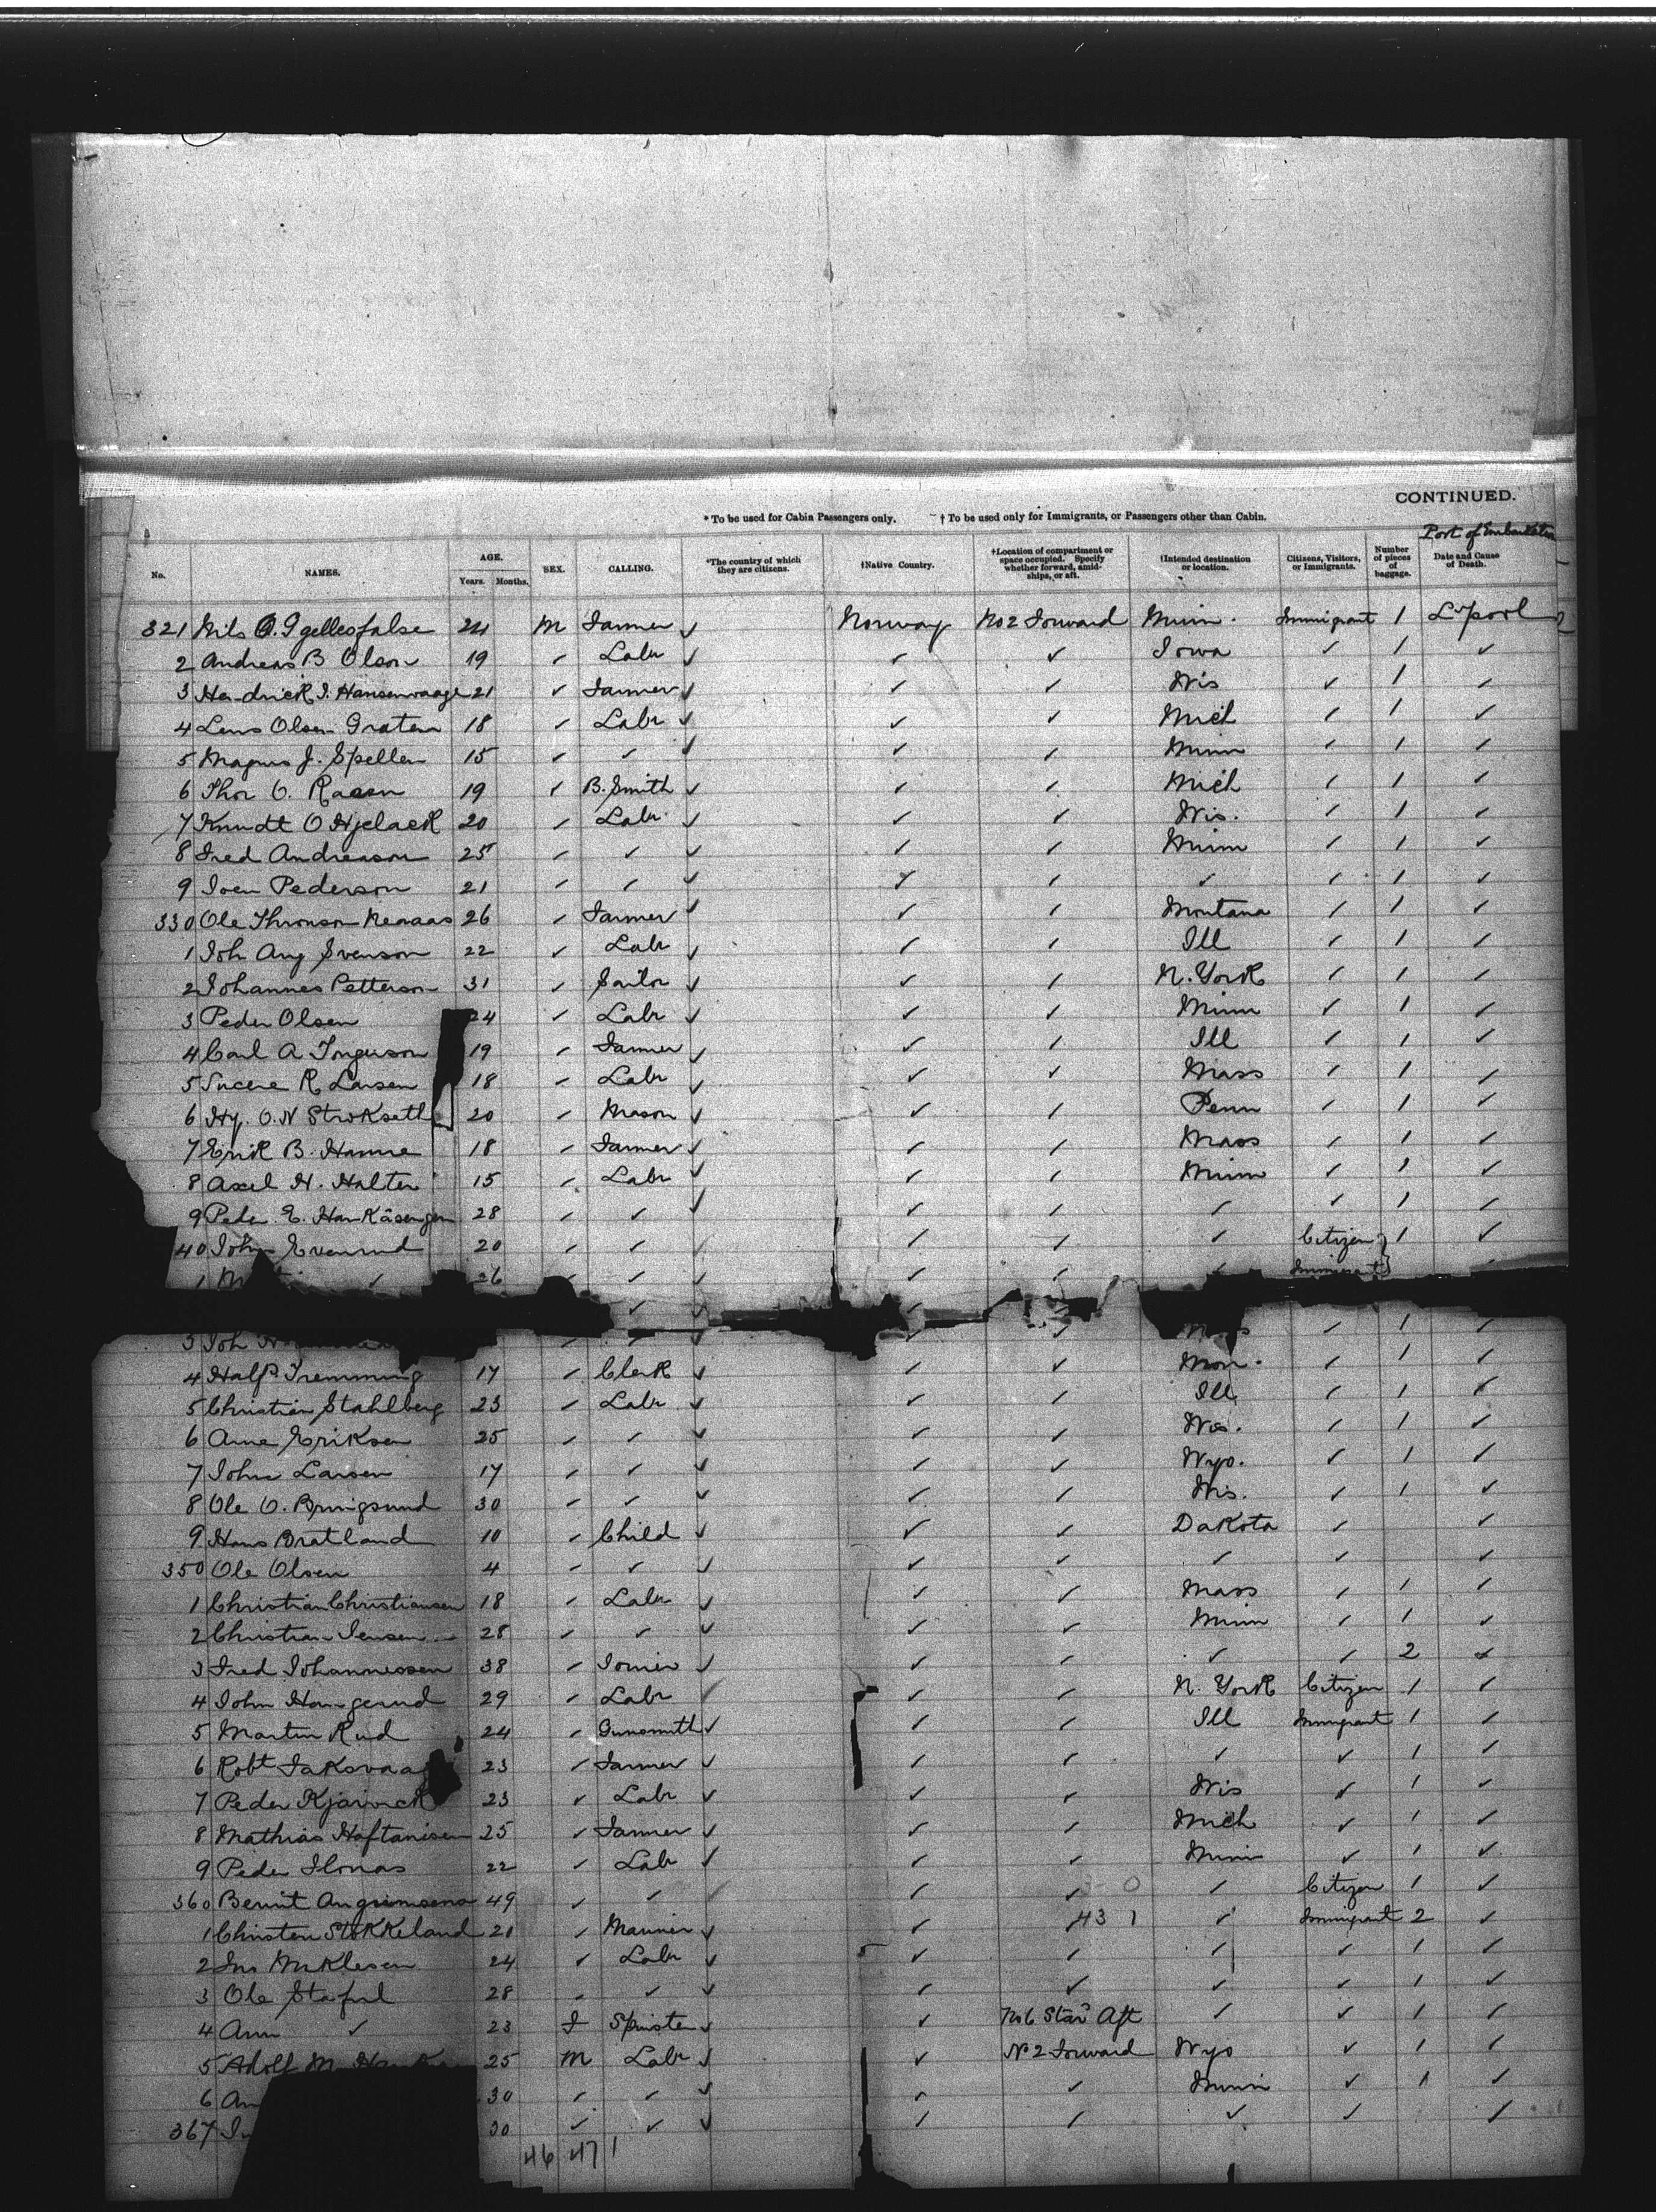 CONTINUED.
* To be used for Cabin Passengers only. † To be used only for Immigrants, or Passengers other than Cabin.
Port of Embarkation
No. NAMES. AGE. Years. Months. SEX. CALLING. *The country of which they are citizens. †Native Country. †Location of compartment or space occupied. Specify whether forward, amidships, or aft. †Intended destination or location. Citizens, Visitors, or Immigrants. Number of pieces of baggage. Date and Cause of Death.
321 Nils 24 M Farmer ✓ Norway No 2 Forward Minn. Immigrant 1 L'pool
2 Andreas B Olson 19 ✓ Labr ✓ ✓ ✓ Iowa ✓ 1 ✓
3 Hendrick I. Hansenvaage 21 ✓ Farmer ✓ ✓ ✓ Wis ✓ 1 ✓
4 Lens Olsen Graten 18 ✓ Labr ✓ ✓ ✓ Mich ✓ 1 ✓
5 Magnus J. Spellen 15 ✓ ✓ ✓ ✓ ✓ Minn ✓ 1 ✓
6 Thor O. 19 ✓ B. Smith ✓ ✓ ✓ Mich ✓ 1 ✓
7 Knudt O Hjelack 20 ✓ Labr ✓ ✓ ✓ Wis. ✓ 1 ✓
8 Fred Andreason 25 ✓ ✓ ✓ ✓ ✓ Minn ✓ 1 ✓
9 Iver Pederson 21 ✓ ✓ ✓ ✓ ✓ ✓ ✓ 1 ✓
330 Ole Thronson 26 ✓ Farmer ✓ ✓ ✓ Montana ✓ 1 ✓
1 Joh Aug Svenson 22 ✓ Labr ✓ ✓ ✓ Ill ✓ 1 ✓
2 Johannes Petterson 31 ✓ Sailor ✓ ✓ ✓ N. York ✓ 1 ✓
3 Peder Olsen 24 ✓ Labr ✓ ✓ ✓ Minn ✓ 1 ✓
4 Carl A Torguson 19 ✓ Farmer ✓ ✓ ✓ Ill ✓ 1 ✓
5 R Larsen 18 ✓ Labr ✓ ✓ ✓ Mass ✓ 1 ✓
6 Hy. O. N Strokseth 20 ✓ Mason ✓ ✓ ✓ Penn ✓ 1 ✓
7 Erik B. Hanne 18 ✓ Farmer ✓ ✓ ✓ Mass ✓ 1 ✓
8 Axel H. Halter 15 ✓ Labr ✓ ✓ ✓ Minn ✓ 1 ✓
9 Peder E. 28 ✓ ✓ ✓ ✓ ✓ ✓ ✓ 1 ✓
40 John Evenrud 20 ✓ ✓ ✓ ✓ ✓ ✓ Citizen 1 ✓
1 26 ✓ ✓ ✓ ✓ ✓ ✓ Immigrant ✓
✓ ✓ ✓
3 Joh ✓ ✓ ✓ ✓ ✓ ✓ 1 ✓
4 Half P. Tremming 17 ✓ Clerk ✓ ✓ ✓ Mon. ✓ 1 ✓
5 Christian Stahlberg 23 ✓ Labr ✓ ✓ ✓ Ill ✓ 1 ✓
6 Arne Eriksen 25 ✓ ✓ ✓ ✓ ✓ Wis. ✓ 1 ✓
7 John Larsen 17 ✓ ✓ ✓ ✓ ✓ Wyo. ✓ 1 ✓
8 Ole O. Bruigsund 30 ✓ ✓ ✓ ✓ ✓ Wis. ✓ 1 ✓
9 Hans Bratland 10 ✓ Child ✓ ✓ ✓ Dakota ✓ ✓
350 Ole Olsen 4 ✓ ✓ ✓ ✓ ✓ ✓ ✓ ✓
1 Christian Christiansen 18 ✓ Labr ✓ ✓ ✓ Mass ✓ 1 ✓
2 Christian Jensen 28 ✓ ✓ ✓ ✓ ✓ Minn ✓ 1 ✓
3 Fred Johannessen 38 ✓ Joiner ✓ ✓ ✓ ✓ ✓ 2 ✓
4 John Haugerud 29 ✓ Labr ✓ ✓ ✓ N. York Citizen 1 ✓
5 Martin Rud 24 ✓ Gunsmith ✓ ✓ ✓ Ill Immigrant 1 ✓
6 Robt 23 ✓ Farmer ✓ ✓ ✓ ✓ ✓ 1 ✓
7 Peder Kjarvick 23 ✓ Labr ✓ ✓ ✓ Wis ✓ 1 ✓
8 Mathias Haftanisen 25 ✓ Farmer ✓ ✓ ✓ Mich ✓ 1 ✓
9 Peder Ilonas 22 ✓ Lab ✓ ✓ ✓ Minn ✓ 1 ✓
360 Bernt 49 ✓ ✓ ✓ ✓ ✓ ✓ Citizen 1 ✓
1 Christen Stokkeland 21 ✓ Mariner ✓ ✓ 43 1 ✓ Immigrant 2 ✓
2 Jns Miklesen 24 ✓ Labr ✓ ✓ ✓ ✓ ✓ 1 ✓
3 Ole 28 ✓ ✓ ✓ ✓ ✓ ✓ ✓ 1 ✓
4 Ann ✓ 23 F Spinster ✓ ✓ No 6 Star Aft ✓ ✓ 1 ✓
5 Adolf M 25 M Labr ✓ ✓ No 2 Forward Wyo ✓ 1 ✓
6 30 ✓ ✓ ✓ ✓ ✓ Minn ✓ 1 ✓
367 30 ✓ ✓ ✓ ✓ ✓ ✓ ✓ ✓
46 47 1